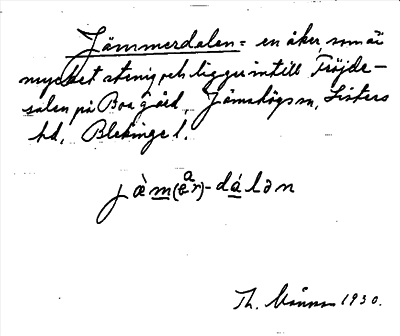 Jämmerdalen = en åker, som är
mycket stenig och ligger intill Fröjde-
salen på Boa gård, Jämshögs sn, Listers
hd, Blekinge l.
jàm(ər)-dálən
Th. 1930.